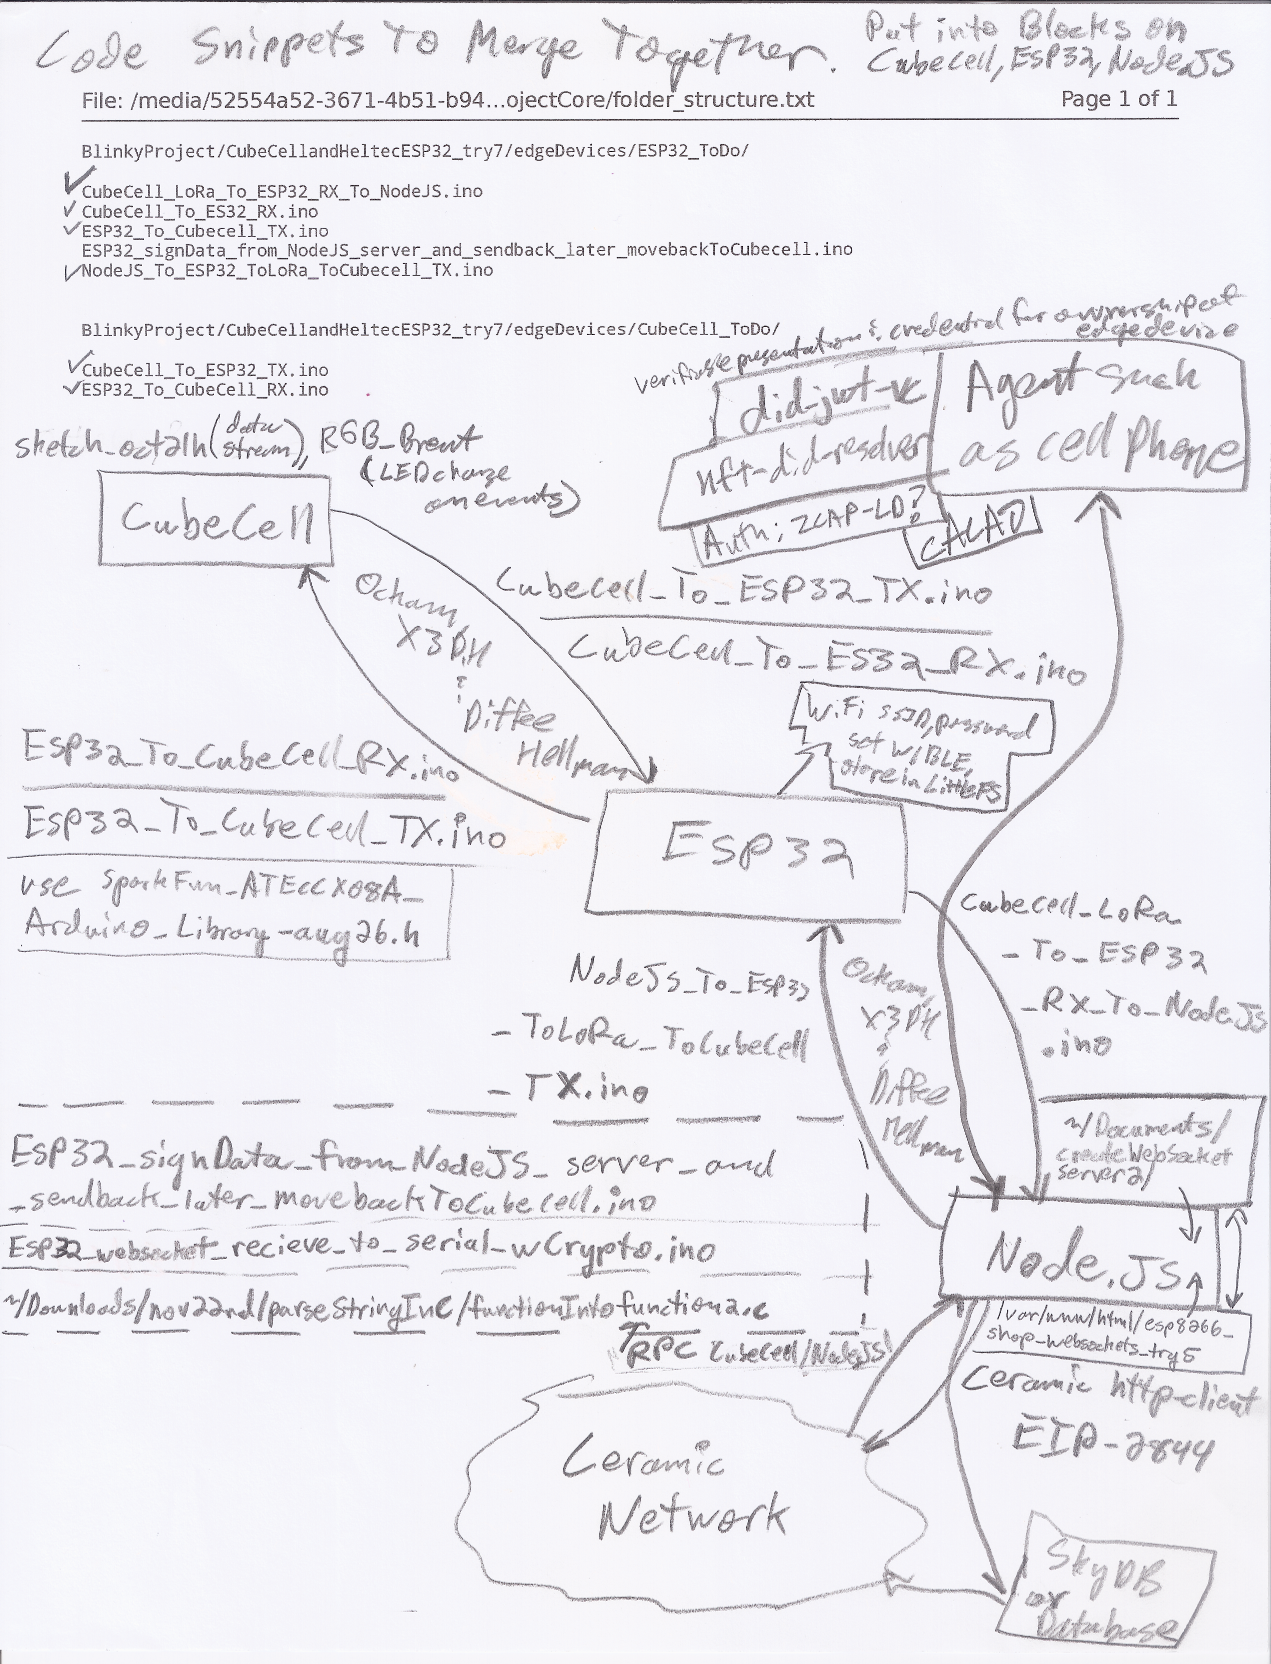 Code Snippets To Merge Together.
Put into Blocks on
Cubecell, ESP32, Node.JS
File: /media/52554a52-3671-4b51-b94...ojectCore/folder_structure.txt
Page 1 of 1
BlinkyProject/CubeCellandHeltecESP32_try7/edgeDevices/ESP32_ToDo/
CubeCell_LoRa_To_ESP32_RX_To_NodeJS.ino
CubeCell_To_ES32_RX.ino
ESP32_To_Cubecell_TX.ino
ESP32_signData_from_NodeJS_server_and_sendback_later_movebackToCubecell.ino
NodeJS_To_ESP32_ToLoRa_ToCubecell_TX.ino
BlinkyProject/CubeCellandHeltecESP32_try7/edgeDevices/CubeCell_ToDo/
CubeCell_To_ESP32_TX.ino
ESP32_To_CubeCell_RX.ino
verifiable presentation & credential for ownership of
edge device
did-jwt-vc
nft-did-resolver
Auth: ZCAP-LD?
CACAO
Agent such
as cell Phone
sketch_oct21h (data
stream), RGB_Brent
(LED change
on events)
CubeCell
Ockam,
X3DH
&
Diffee
Hellman
Cubecell_To_ESP32_TX.ino
CubeCell_To_ES32_RX.ino
WiFi SSID, password
set w/BLE,
store in LittleFS
ESP32_To_CubeCell_RX.ino
ESP32_To_CubeCell_TX.ino
use SparkFun_ATECCX08A_
Arduino_Library-aug26.h
ESP32
Cubecell_LoRa
_To_ESP32
_RX_To_NodeJS
.ino
NodeJS_To_ESP32
_ToLoRa_ToCubeCell
_TX.ino
Ockam,
X3DH
&
Diffee
Hellman
~/Documents/
createWebSocket
server2/
ESP32_signData_from_NodeJS_server_and
_sendback_later_movebackToCubecell.ino
ESP32_websocket_recieve_to_serial_wCrypto.ino
~/Downloads/nov22nd/parseStringInC/functionIntofunction2.c
RPC CubeCell/NodeJS
Node.JS
/var/www/html/esp8266_
shop_websockets_try5
Ceramic http-client
EIP-2844
Ceramic
Network
SkyDB
or
Database